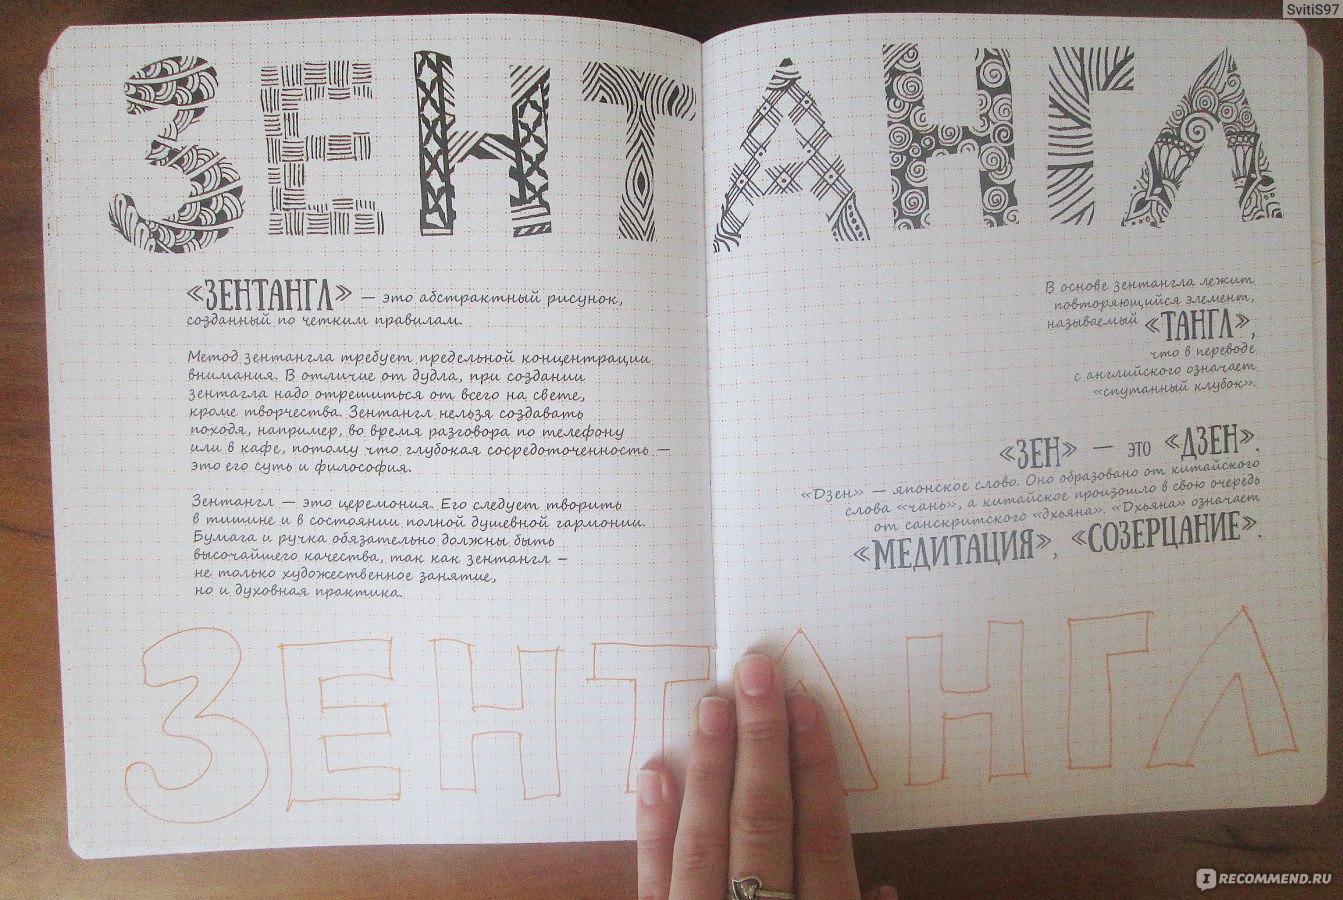 SvitiS97
ЗЕНТАНГЛ
«ЗЕНТАНГЛ» — это абстрактный рисунок,
созданный по четким правилам.
Метод зентангла требует предельной концентрации
внимания. В отличие от дудла, при создании
зентагла надо отрешиться от всего на свете,
кроме творчества. Зентангл нельзя создавать
походя, например, во время разговора по телефону
или в кафе, потому что глубокая сосредоточенность —
это его суть и философия.
Зентангл — это церемония. Его следует творить
в тишине и в состоянии полной душевной гармонии.
Бумага и ручка обязательно должны быть
высочайшего качества, так как зентангл —
не только художественное занятие,
но и духовная практика.
В основе зентангла лежит
повторяющийся элемент,
называемый «ТАНГЛ»,
что в переводе
с английского означает
«спутанный клубок».
«ЗЕН» — это «ДЗЕН».
«Дзен» — японское слово. Оно образовано от китайского
слова «чань», а китайское произошло в свою очередь
от санскритского «дхьяна». «Дхьяна» означает
«МЕДИТАЦИЯ», «СОЗЕРЦАНИЕ».
ЗЕНТАНГЛ
IRECOMMEND.RU